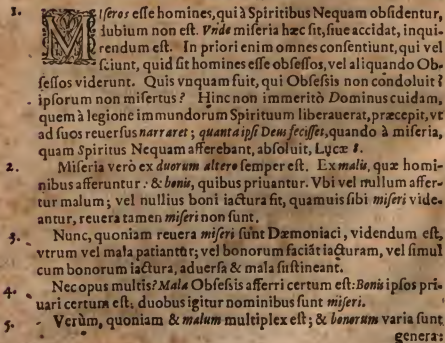 1. MIſeros eſſe homines, qui à Spiritibus Nequam obſidentur,
dubium non eſt. Vnde miſeria hæc ſit, ſiue accidat, inqui-
rendum eſt. In priori enim omnes conſentiunt, qui vel
ſciunt, quid ſit homines eſſe obſeſſos, vel aliquando Ob-
ſeſſos viderunt. Quis vnquam fuit, qui Obſeſsis non condoluit?
ipſorum non miſertus? Hinc non immeritò Dominus cuidam,
quem à legione immundorum Spirituum liberauerat, præcepit, vt
ad ſuos reuerſus narraret; quanta ipſi Deus feciſſet, quando à miſeria,
quam Spiritus Nequam afferebant, abſoluit, Lycæ 8.
2. Miſeria verò ex duorum altero ſemper eſt. Ex malis, quæ homi-
nibus afferuntur: & bonis, quibus priuantur. Vbi vel nullum affer-
tur malum; vel nullius boni iactura fit, quamuis ſibi miſeri vide-
antur, reuera tamen miſeri non ſunt.
3. Nunc, quoniam reuera miſeri ſunt Dæmoniaci, videndum eſt,
vtrum vel mala patiantur; vel bonorum faciāt iacturam, vel ſimul
cum bonorum iactura, aduerſa & mala ſuſtineant.
4. Nec opus multis? Mala Obſeſsis afferri certum eſt: Bonis ipſos pri-
uari certum eſt: duobus igitur nominibus ſunt miſeri.
5. Verùm, quoniam & malum multiplex eſt; & bonorum varia ſunt
genera: